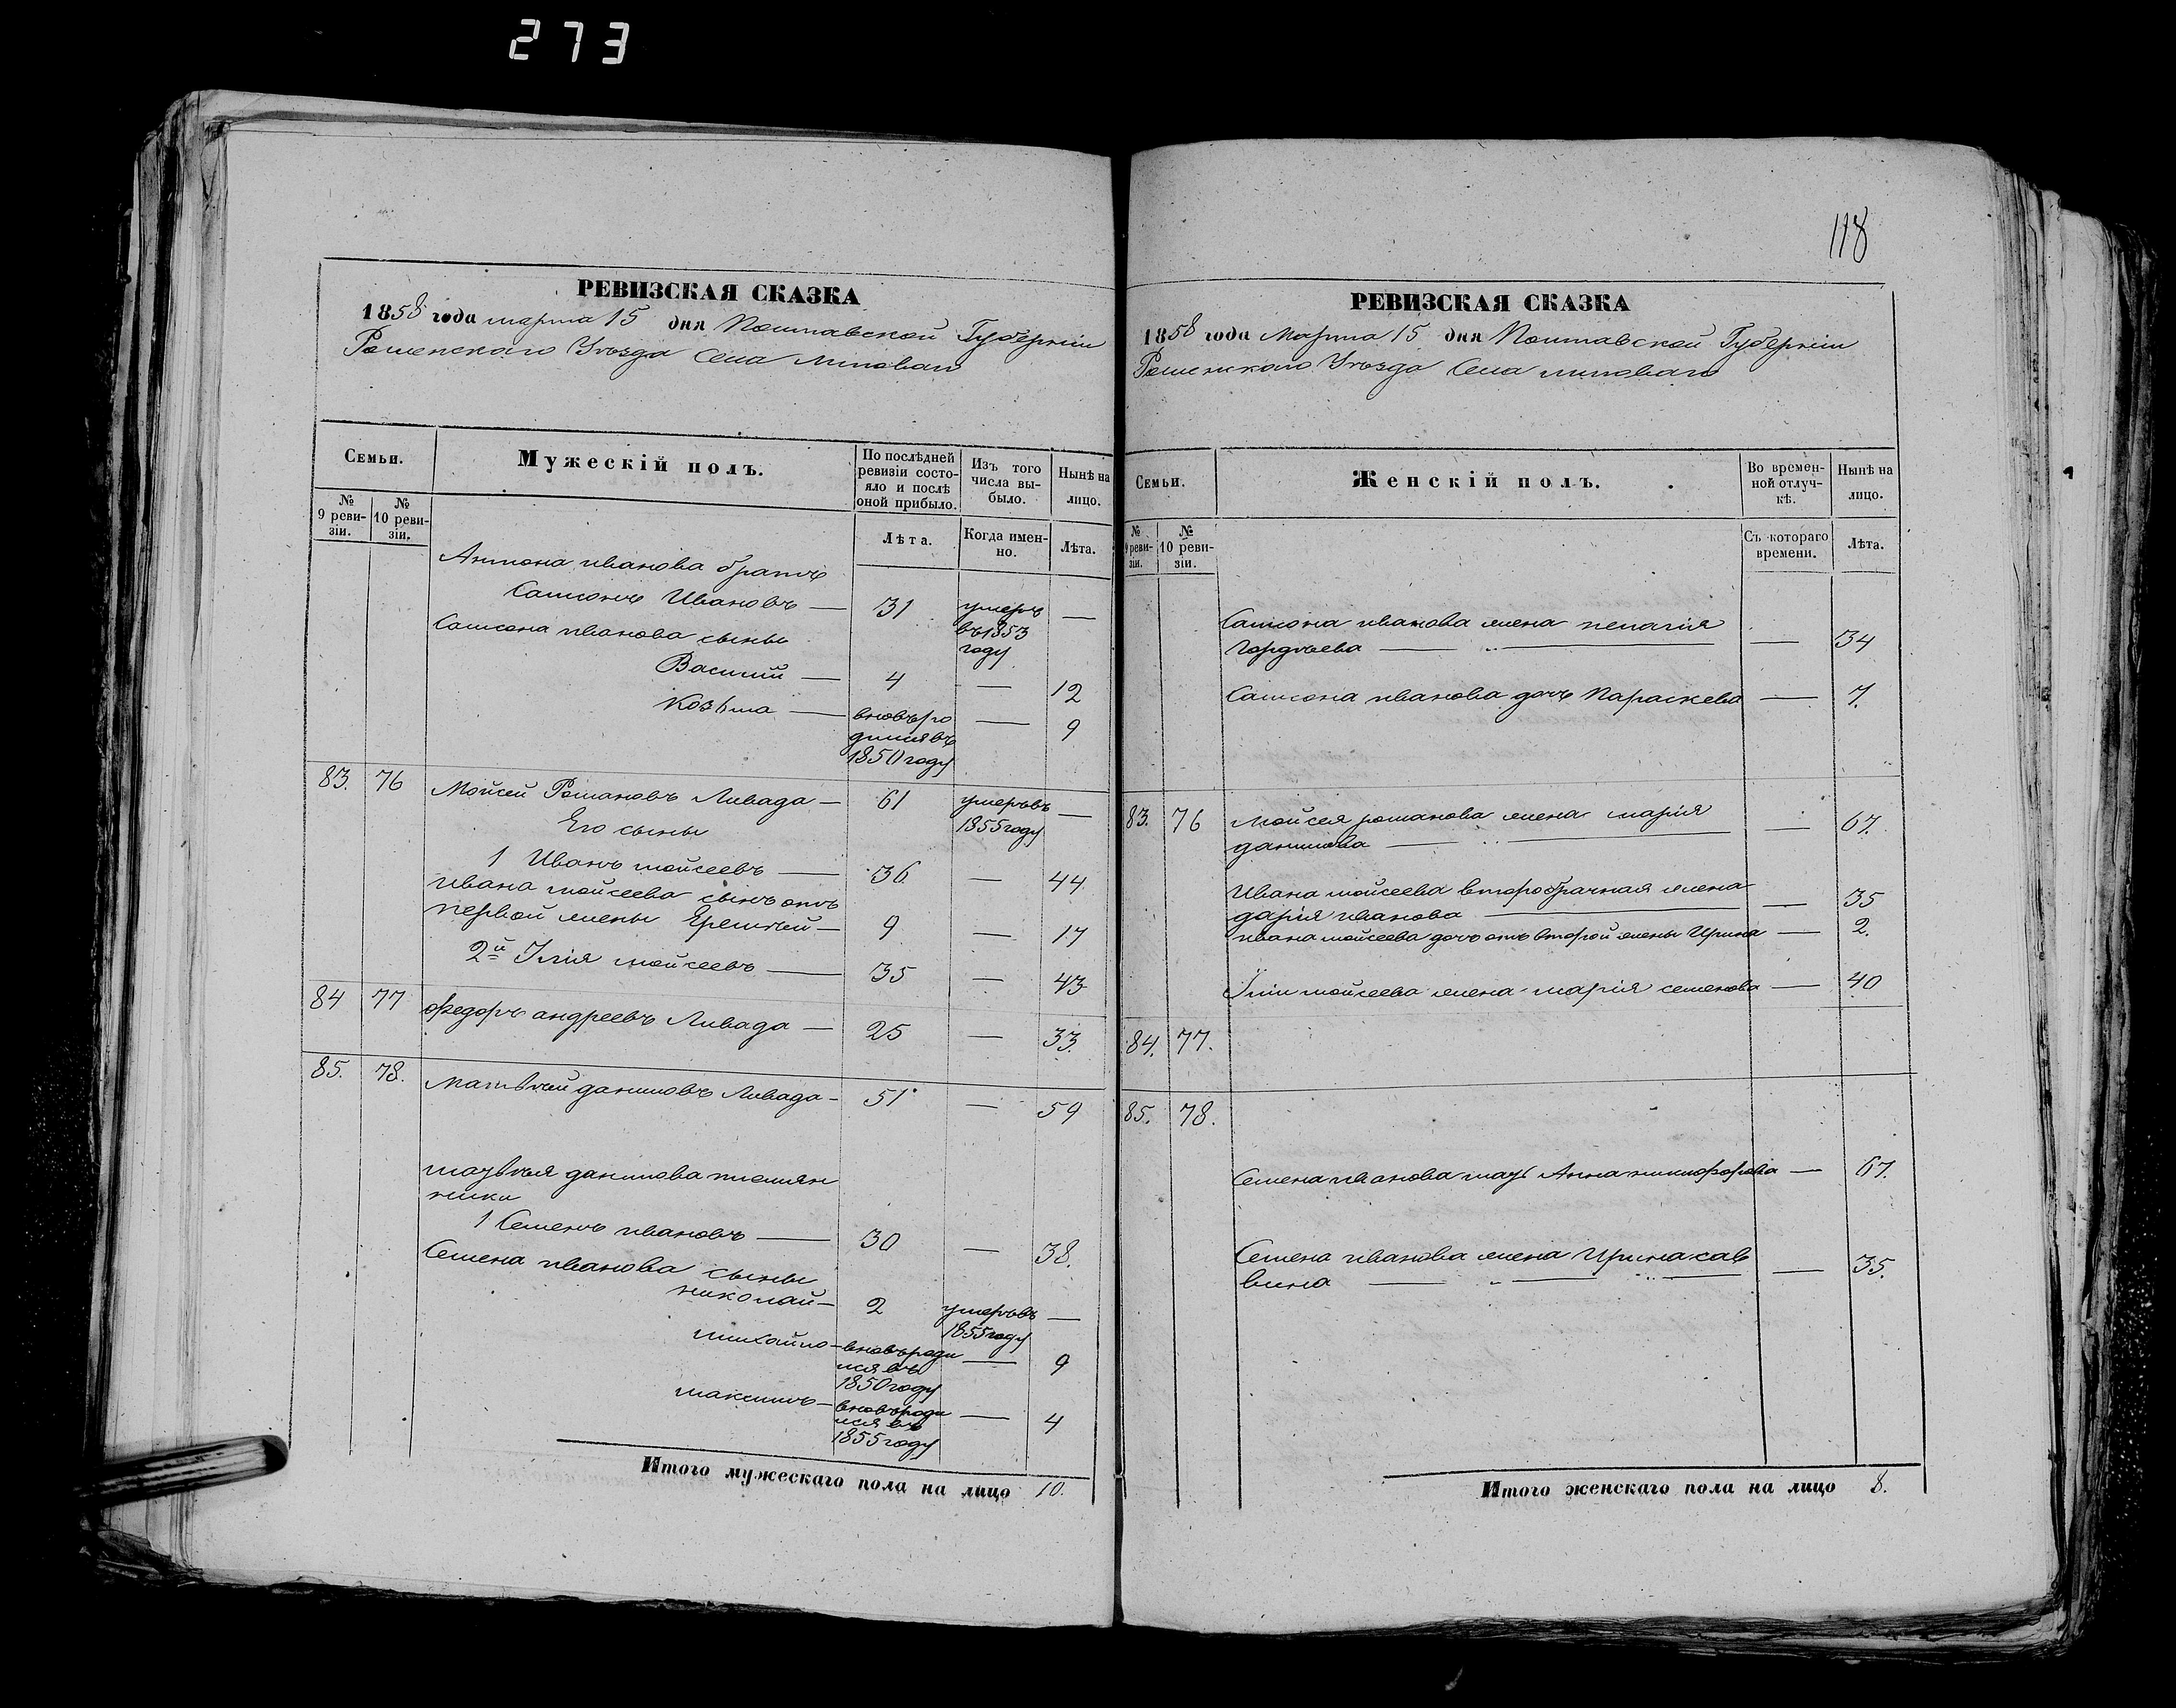 273
118
РЕВИЗСКАЯ СКАЗКА
1858 года марта 15 дня Полтавской Губерніи
Роменскаго Уѣзда Села Липоваго
Семьи.
Мужескій полъ.
По послѣдней
ревизіи состо-
яло и послѣ
оной прибыло.
Изъ того
числа вы-
было.
Нынѣ на
лицо.
№
9 реви-
зіи.
№
10 реви-
зіи.
Лѣта.
Когда имен-
но.
Лѣта.
Антона иванова братъ
Самсонъ Ивановъ — 31 умеръ —
въ 1853
году
Самсона иванова сыны
Василий — 4 — 12
Козьма — вновь ро — 9
дился въ
1850 году
83. 76 Мойсей Романовъ Ливада — 61 умеръ въ —
1855 году
Его сыны
1 Иванъ мойсеевъ — 36 — 44.
ивана мойсеева сынъ отъ
первой жены Еремѣй — 9 — 17
2й Илія мойсеевъ — 35 — 43
84 77 Федоръ андреевъ Ливада — 25 — 33.
85. 78. Матвѣй даниловъ Ливада — 51 — 59
матвѣя данилова племян
ники
1 Семенъ ивановъ — 30 — 38.
Семена иванова сыны
николай — 2 умеръ въ —
1855 году
михайло — вновь роди — 9
лся въ
1850 году
максимъ — вновь роди — 4
лся въ
1855 году
Итого мужескаго пола на лицо 10.
РЕВИЗСКАЯ СКАЗКА
1858 года Марта 15 дня Полтавской Губерніи
Роменскаго Уѣзда Села липоваго
Семьи.
Женскій полъ.
Во времен-
ной отлуч-
кѣ.
Нынѣ на
лицо.
№
9 реви-
зіи.
№
10 реви-
зіи.
Съ котораго
времени.
Лѣта.
Самсона иванова жена пелагія
Гордѣева — 34
Самсона иванова дочь Параскева — 7.
83. 76 Мойсея романова жена марія
данилова — 67.
Ивана мойсеева второбрачная жена
дарія иванова — 35
ивана мойсеева дочь отъ второй жены Ирина — 2.
Иліи мойсеева жена марія семенова — 40
84. 77.
85. 78.
Семена иванова мать Анна никифорова — 67.
Семена иванова жена Ирина сав
вина — 35.
Итого женскаго пола на лицо 8.